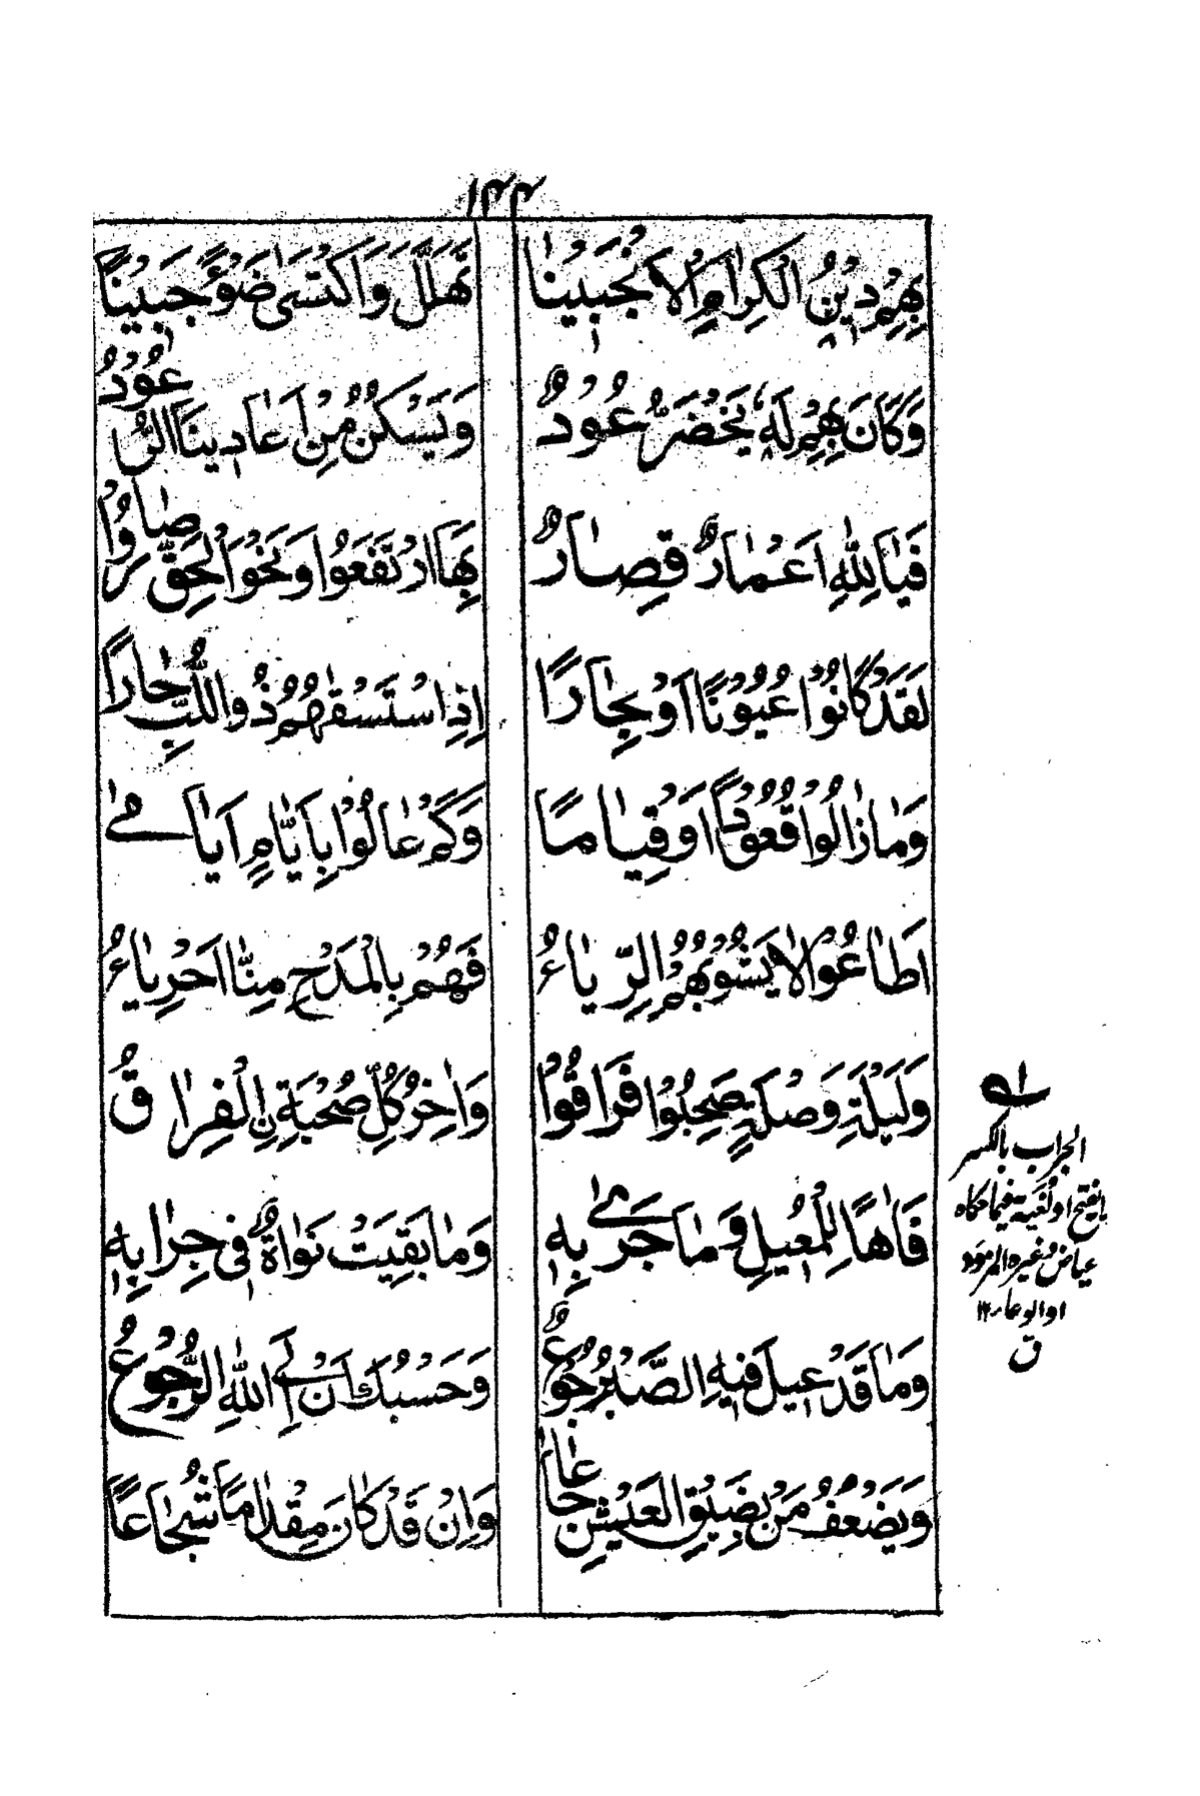 ١٤٤
بِهِمْ دِيْنُ الْكِرَامِ الْأَنْجَبِيْنَا تَهَلَّلَ وَاكْتَسٰى ضَوْءً جَبِيْنًا
وَكَانَ بِهِمْ لَهٗ يَخْضَرُّ عُوْدٌ وَيَسْكُنُ مِنْ اَعَادِيْنَا الرُّعُوْدُ
فَيَا لِلّٰهِ اَعْمَارٌ قِصَارٌ بِهَا ارْتَفَعُوْا وَنَحْوَ الْحَقِّ صَارُوْا
لَقَدْ كَانُوْا عُيُوْنًا اَوْ بِحَارًا اِذِ اسْتَسْقٰهُمْ ذُو اللُّبِّ حَارًا
وَمَا زَالُوْا قُعُوْدًا اَوْ قِيَامًا وَكَمْ عَالُوْا بِاَيَّامٍ اَيَامٰى
اَطَاعُوْا لَا يَشُوْبُهُمُ الرِّيَاءُ فَهُمْ بِالْمَدْحِ مِنَّا اَحْرِيَاءُ
وَلَيْلَةِ وَصْلَةٍ صَحِبُوْا فَرَاقُوْا وَاٰخِرُ كُلِّ صُحْبَةِ نِ الْفِرَاقُ
فَاٰهًا لِلْمُعِيْلِ وَمَا جَرٰى بِهٖ وَمَا بَقِيَتْ نَوَاةٌ فِيْ جِرَابِهٖ
وَمَا قَدْ عِيْلَ فِيْهِ الصَّبْرُ جُوْعٌ وَحَسْبُكَ اَنْ اِلَى اللّٰهِ الرُّجُوْعُ
وَيَضْعُفُ مَنْ بِضِيْقِ الْعَيْشِ جَاعَا وَاِنْ قَدْ كَانَ مِقْدَامًا شُجَاعًا
الجراب بالكسر
بالفتح او لغية فيما حكاه
عياض وغيره المزود
او الوعاء ١٢
ق